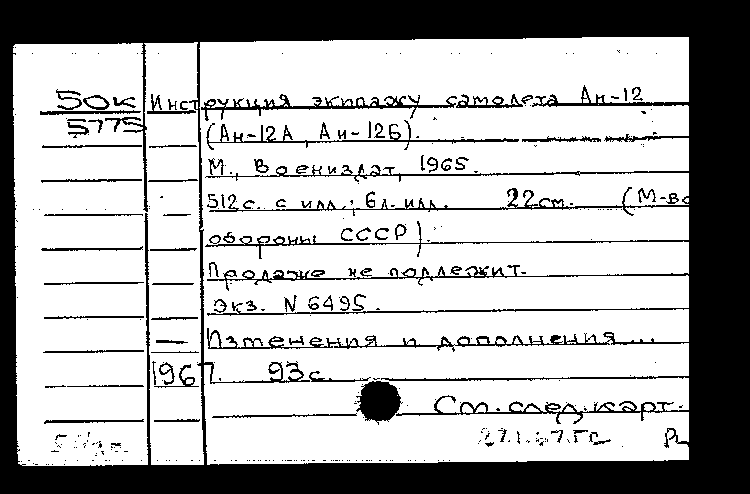 50к Инструкция экипажу самолета Ан-12
5775 (Ан-12А, Ан-12Б).
М., Воениздат, 1965.
512с. с илл.; 6л. илл. 22см. (М-во
обороны СССР).
Продаже не подлежит.
Экз. N 6495.
— Изменения и дополнения...
1967. 93с.
См. след. карт.
27.1.67.ГС